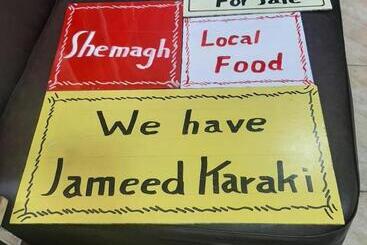 For Sale
Shemagh
Local
Food
We have
Jameed Karaki